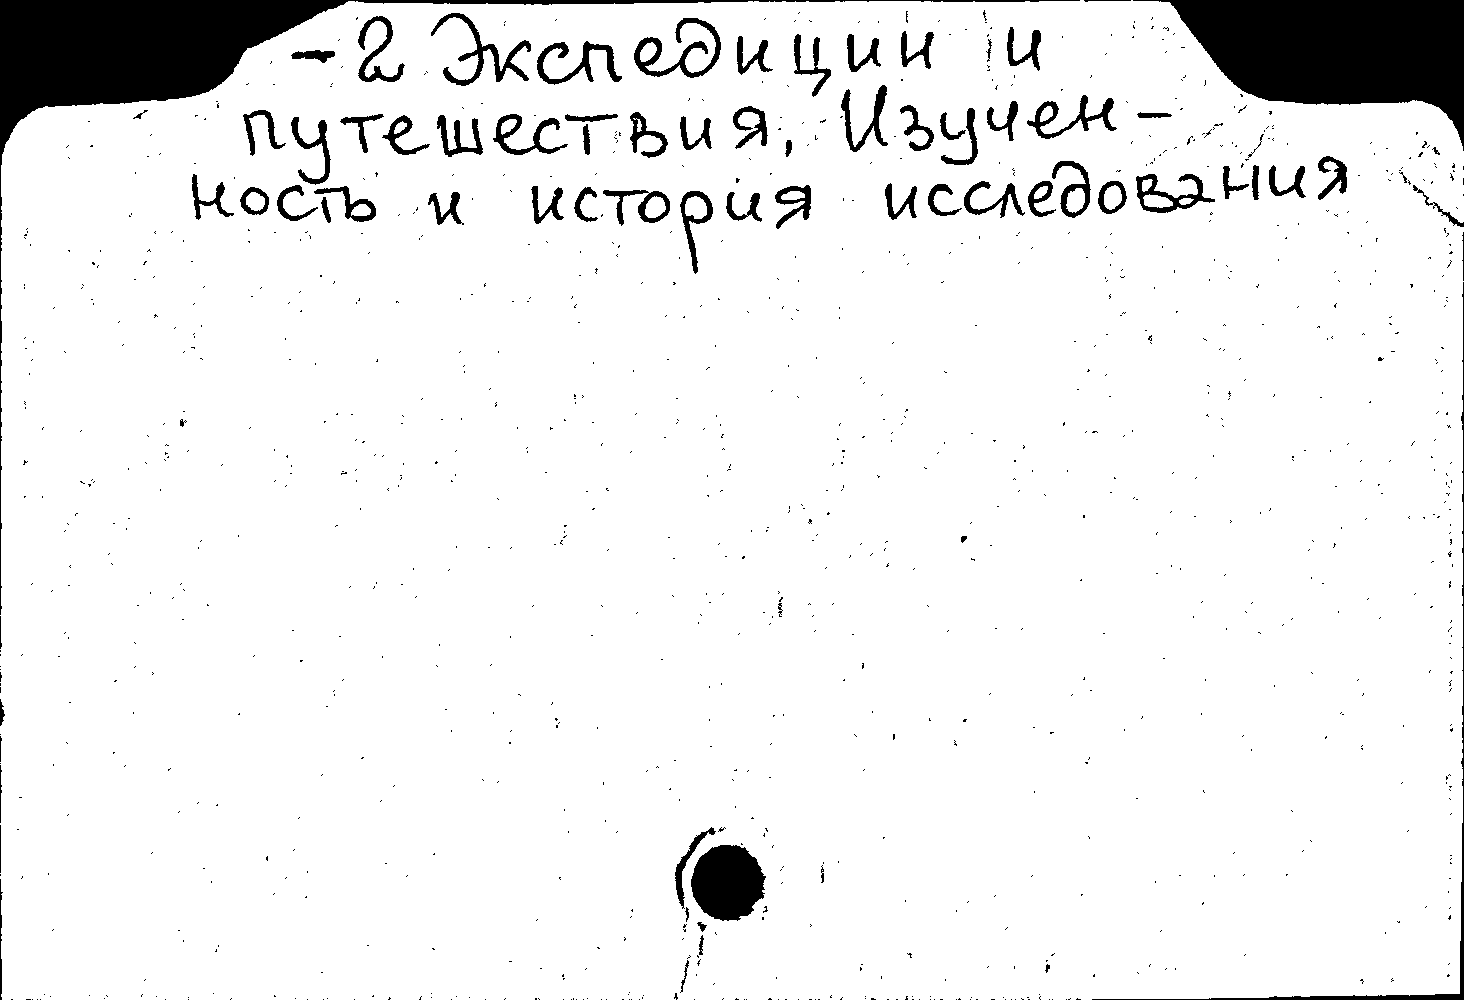 -2 Экспедиции и
путешествия. Изучен-
ность и история исследования